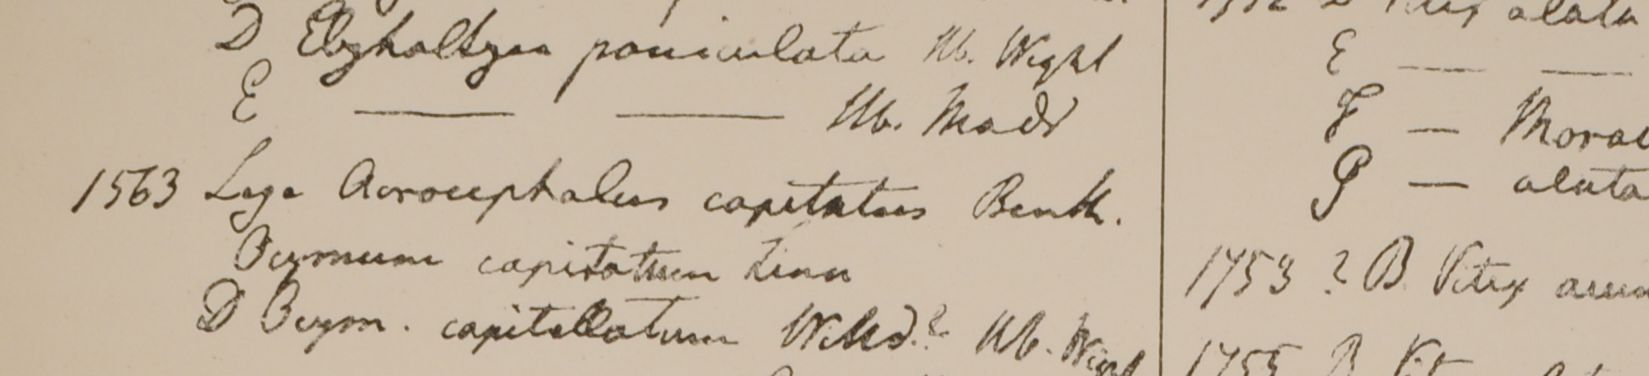 D Elsholtzia paniculata Hb. Wight
E — — Hb. Madr
1563 Lege Acrocephalus capitatus Benth.
Ocymum capitatum Linn
D Ocym. capitellatum Willd.? Hb. Wight
1752 D Vitex alata
E — —
F —
G — alata
1753 ? B Vitex
1755 B